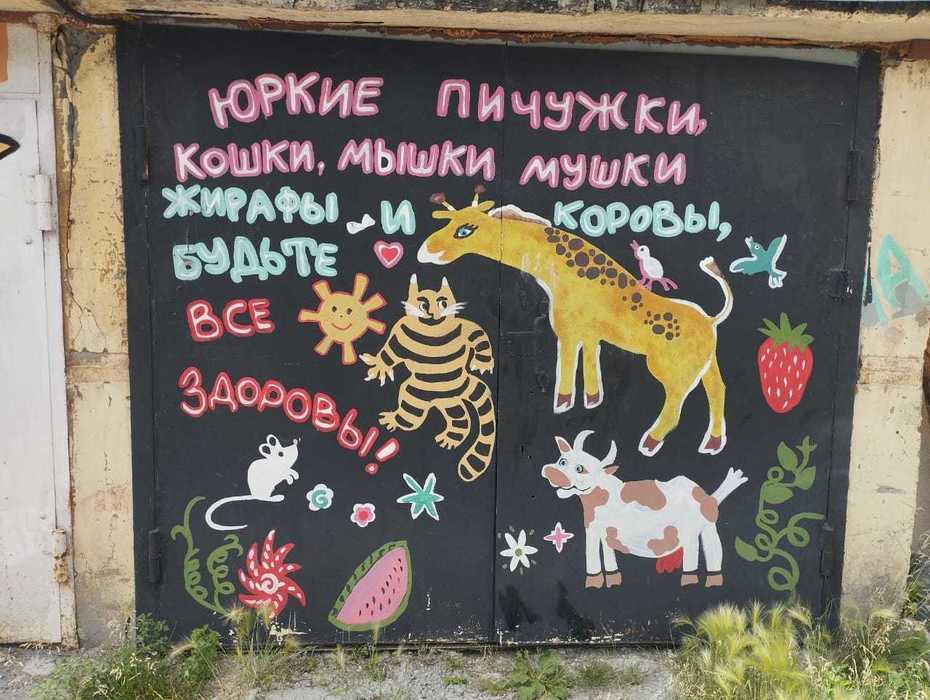 ЮРКИЕ ПИЧУЖКИ,
КОШКИ, МЫШКИ МУШКИ
ЖИРАФЫ И КОРОВЫ,
БУДЬТЕ
ВСЕ
ЗДОРОВЫ!!